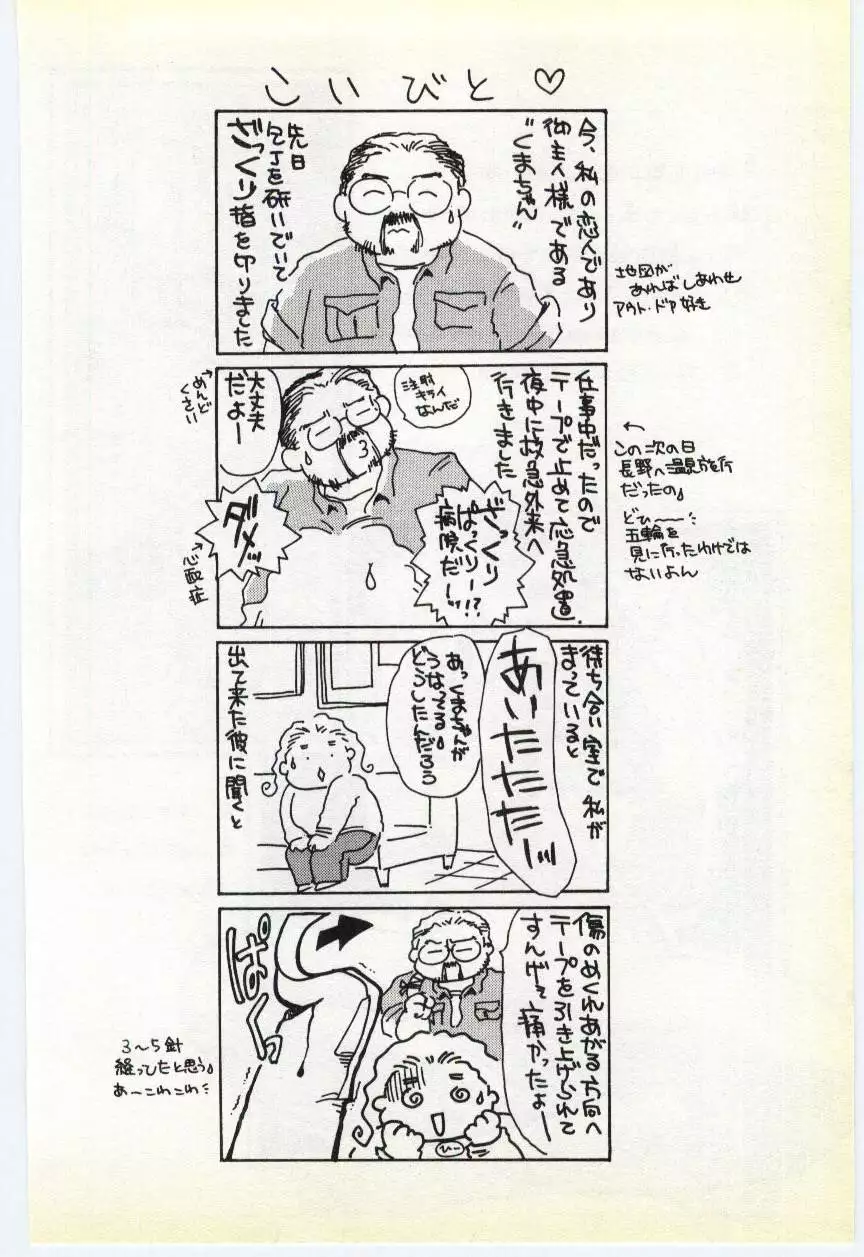 こいびと♡
今、私の恋人であり
御主人様である
“くまちゃん”
先日
包丁を研いでいて
ざっくり指を切りました
地図が
あればしあわせ
アウト・ドア好き
仕事中だったので
テープで止めて応急処置。
夜中に救急外来へ
行きました
注射
キライ
なんだ
大丈夫
だよー
←めんど
くさい→
ざっくり
ぱっくりー!?
病院だーッ!
ダメッ
←心配症
←
この次の日
長野へ温泉旅行
だったの。
どひ〜〜
五輪を
見に行ったわけでは
ないよん
待ち合い室で私が
まっていると
あいたたたーッ
あっくまちゃんが
うなってる。
どうしたんだろう
出て来た彼に聞くと
傷のめくれあがる方向へ
テープを引き上げられて
すんげェ痛かったよー
ぱくっ
ひー
3〜5針
縫ってたと思う。
あーこわこわ